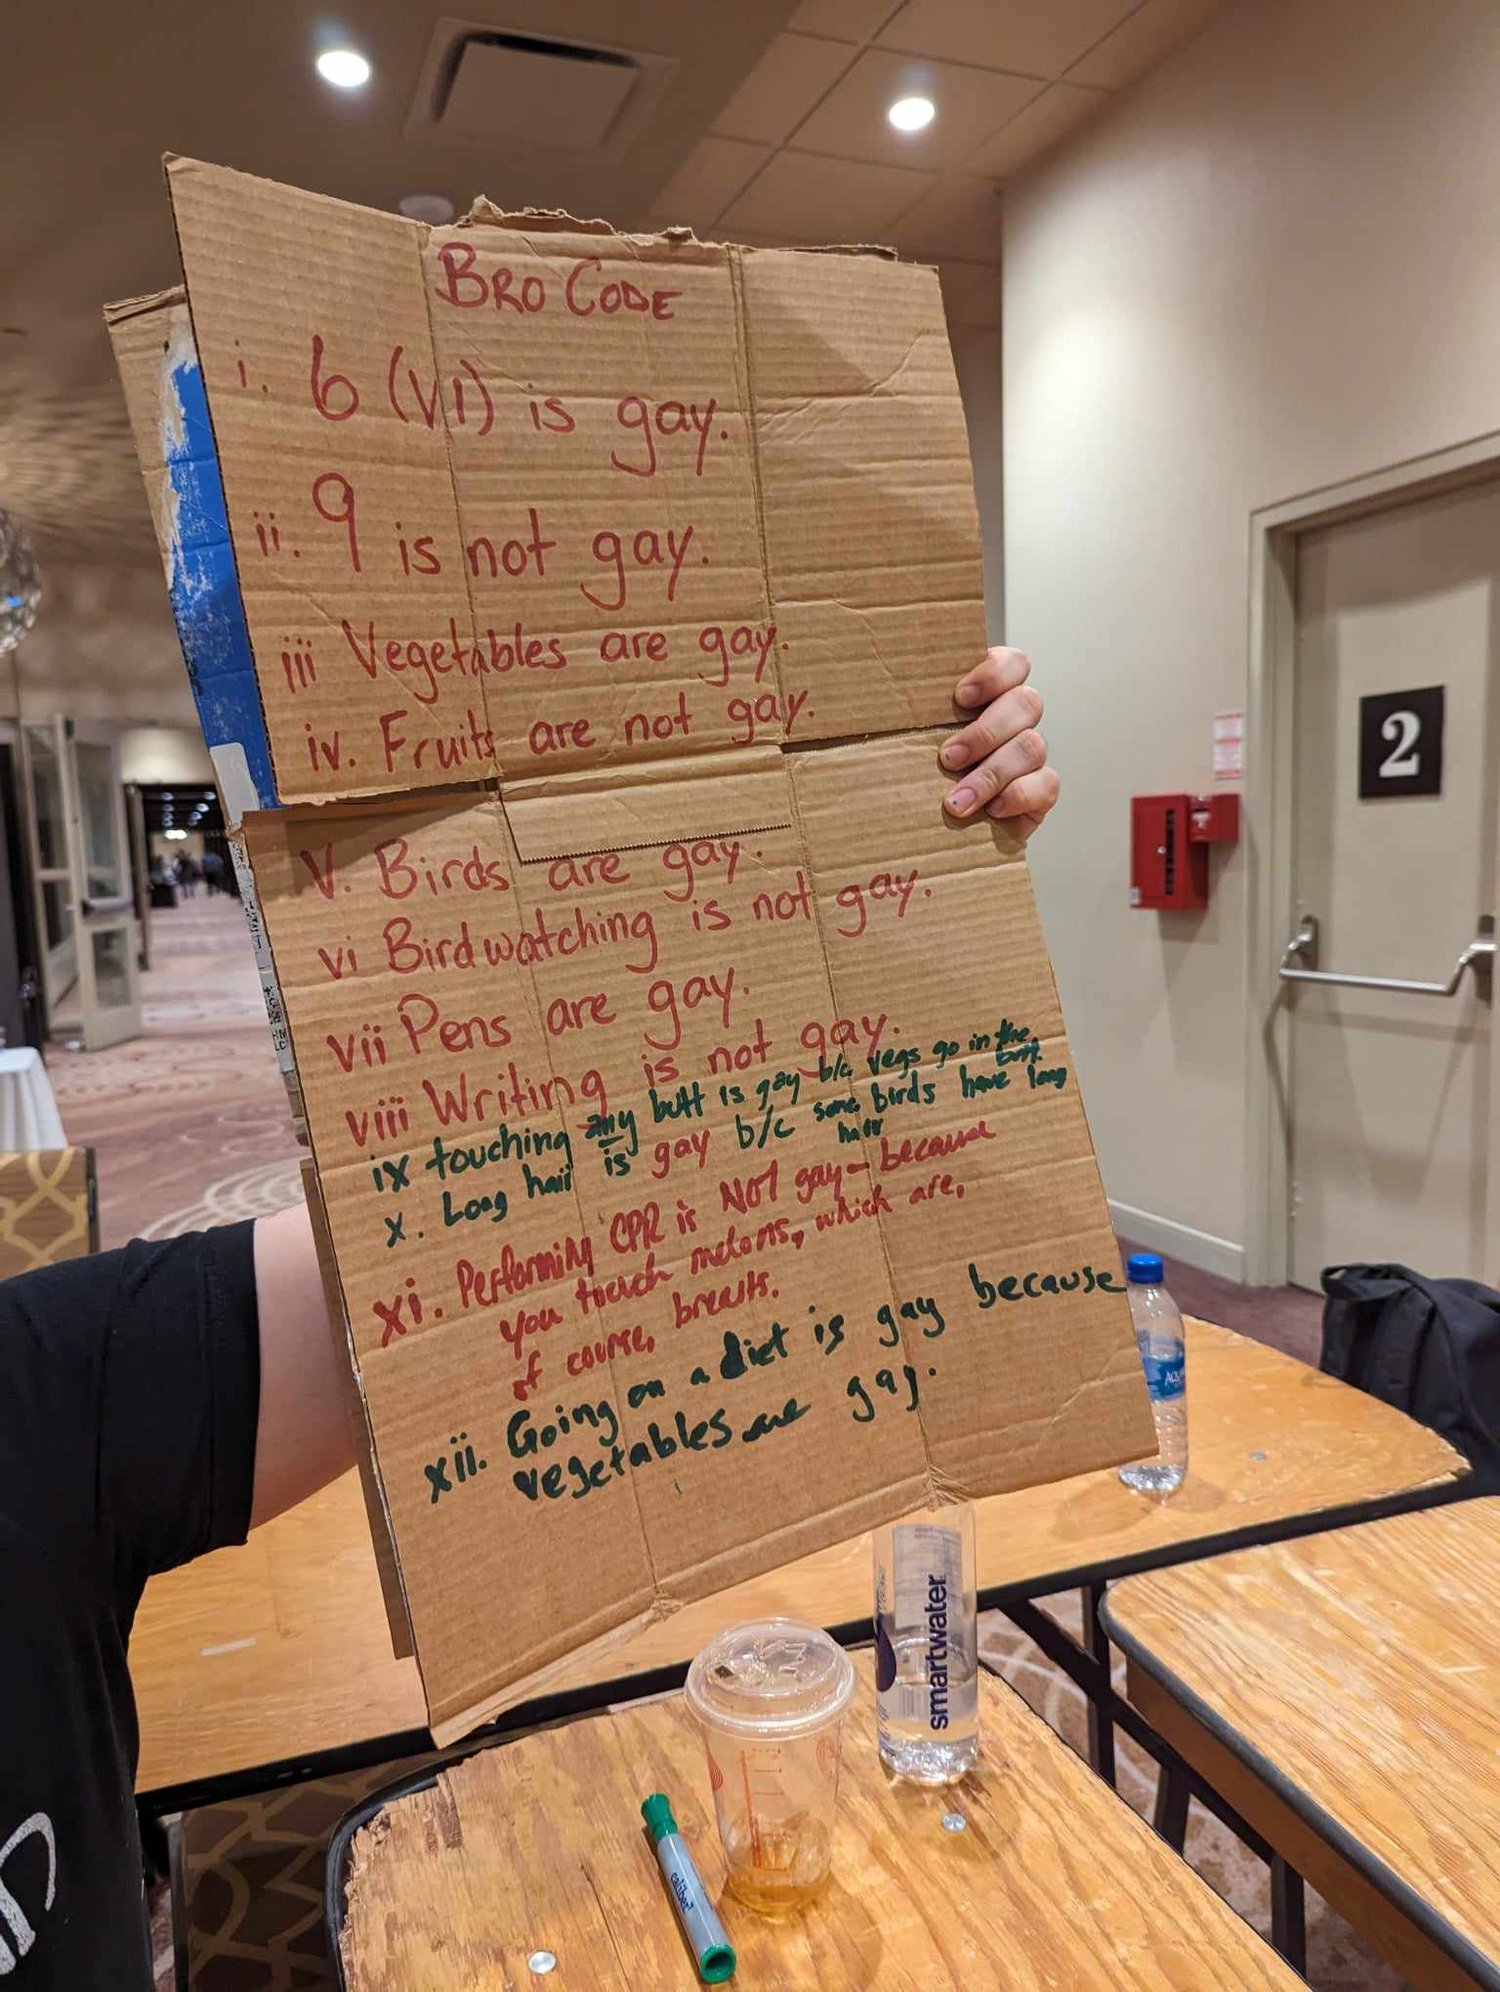 BRO CODE
i. 6 (VI) is gay.
ii. 9 is not gay.
iii Vegetables are gay.
iv. Fruits are not gay.
v. Birds are gay.
vi Birdwatching is not gay.
vii Pens are gay.
viii Writing is not gay.
ix touching any butt is gay b/c vegs go in the butt.
x. Long hair is gay b/c some birds have long hair
xi. Performing CPR is NOT gay – because
you touch melons, which are,
of course, breasts.
xii. Going on a diet is gay because
vegetables are gay.
2
smartwater
caliber